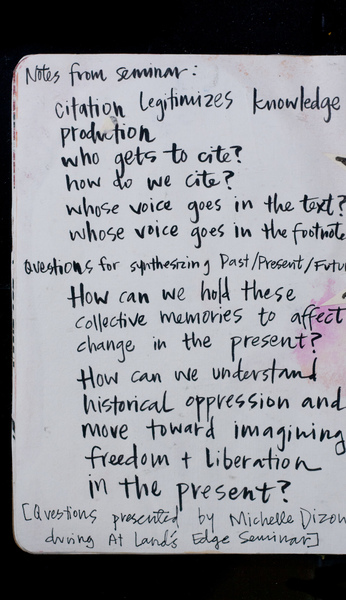 Notes from seminar:
citation legitimizes knowledge
production
who gets to cite?
how do we cite?
whose voice goes in the text?
whose voice goes in the footnote
Questions for synthesizing Past/Present/Futu
How can we hold these
collective memories to affect
change in the present?
How can we understand
historical oppression and
move toward imagining
freedom + liberation
in the present?
[Questions presented by Michelle Dizon
during At Land's Edge Seminar]